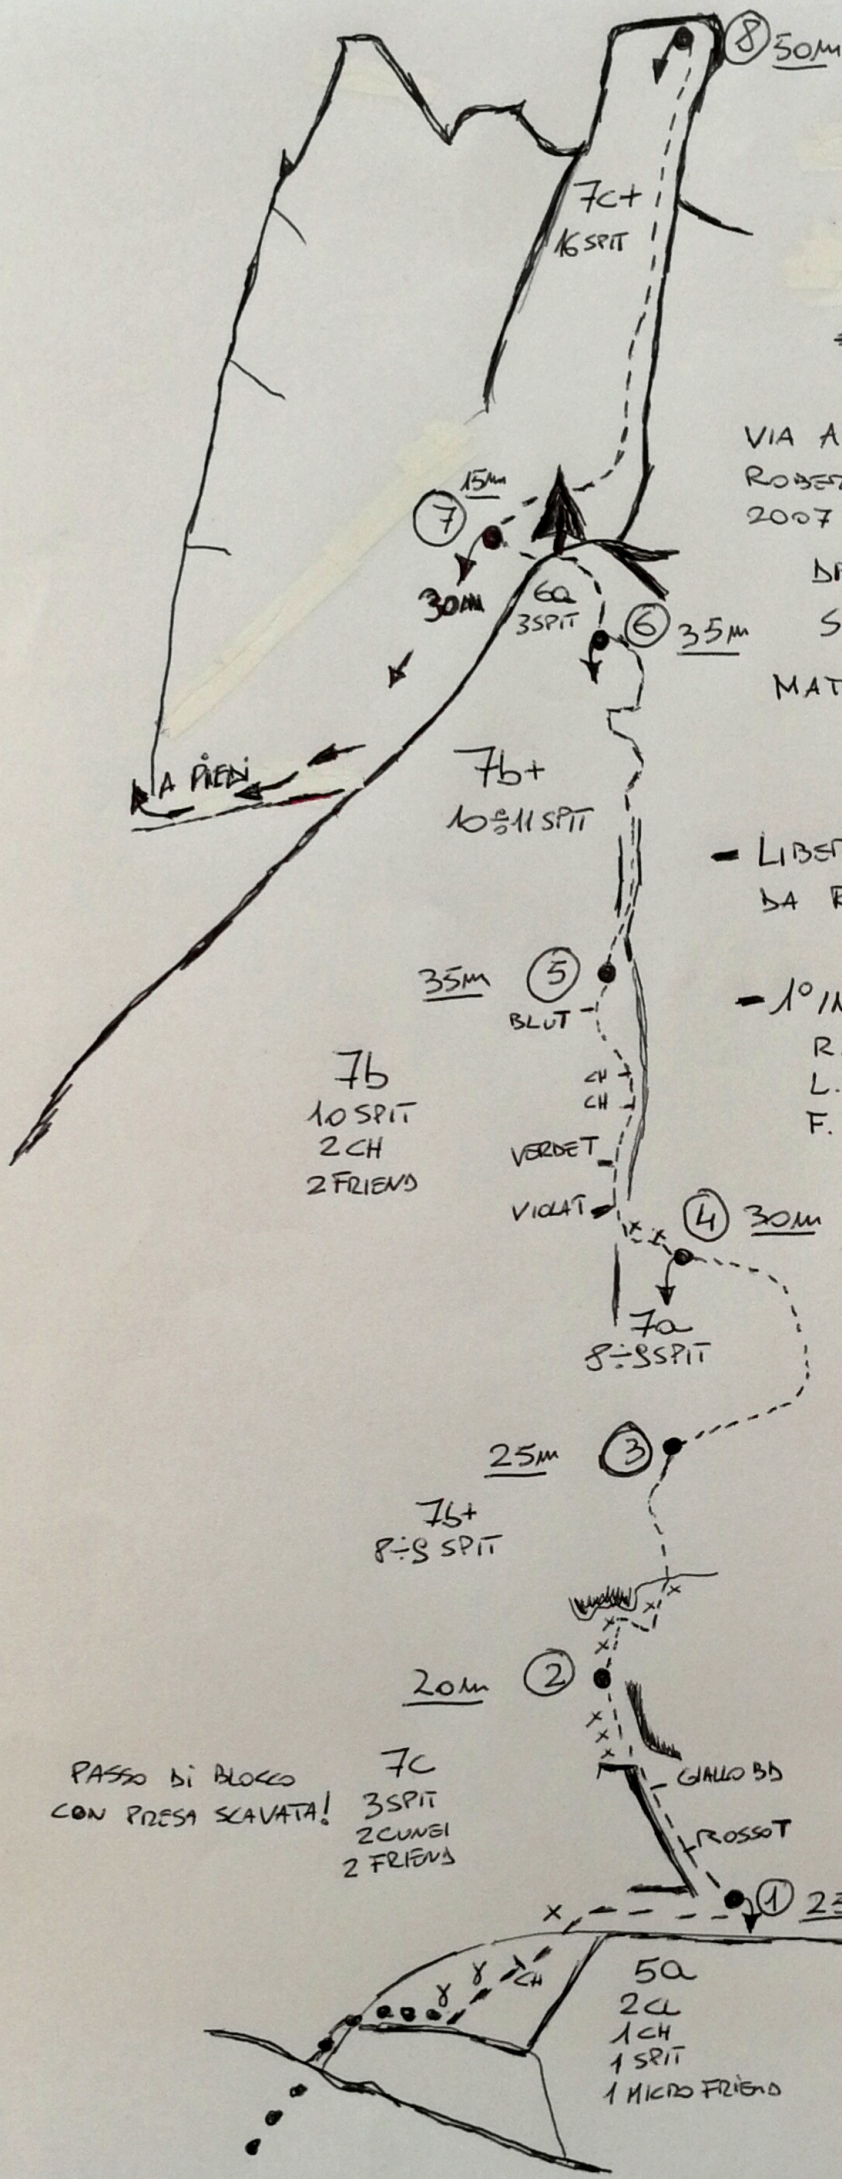 8 50m
7c+
16 SPIT
15m
7
30m
6a
3 SPIT
6 35m
VIA A
2007
S
MAT
7b+
10÷11 SPIT
A PIEDI
- LIBER
DA R
35m 5
BLU T
- 1° IN
R.
L.
F.
7b
10 SPIT
2 CH
2 FRIEND
CH
CH
VERDE T
VIOLA T
4 30m
7a
8÷9 SPIT
25m 3
7b+
8÷9 SPIT
20m 2
PASSO DI BLOCCO
CON PRESA SCAVATA!
7c
3 SPIT
2 CUNEI
2 FRIEND
GIALLO BD
ROSSO T
1
CH
5a
2 CL
1 CH
1 SPIT
1 MICRO FRIEND